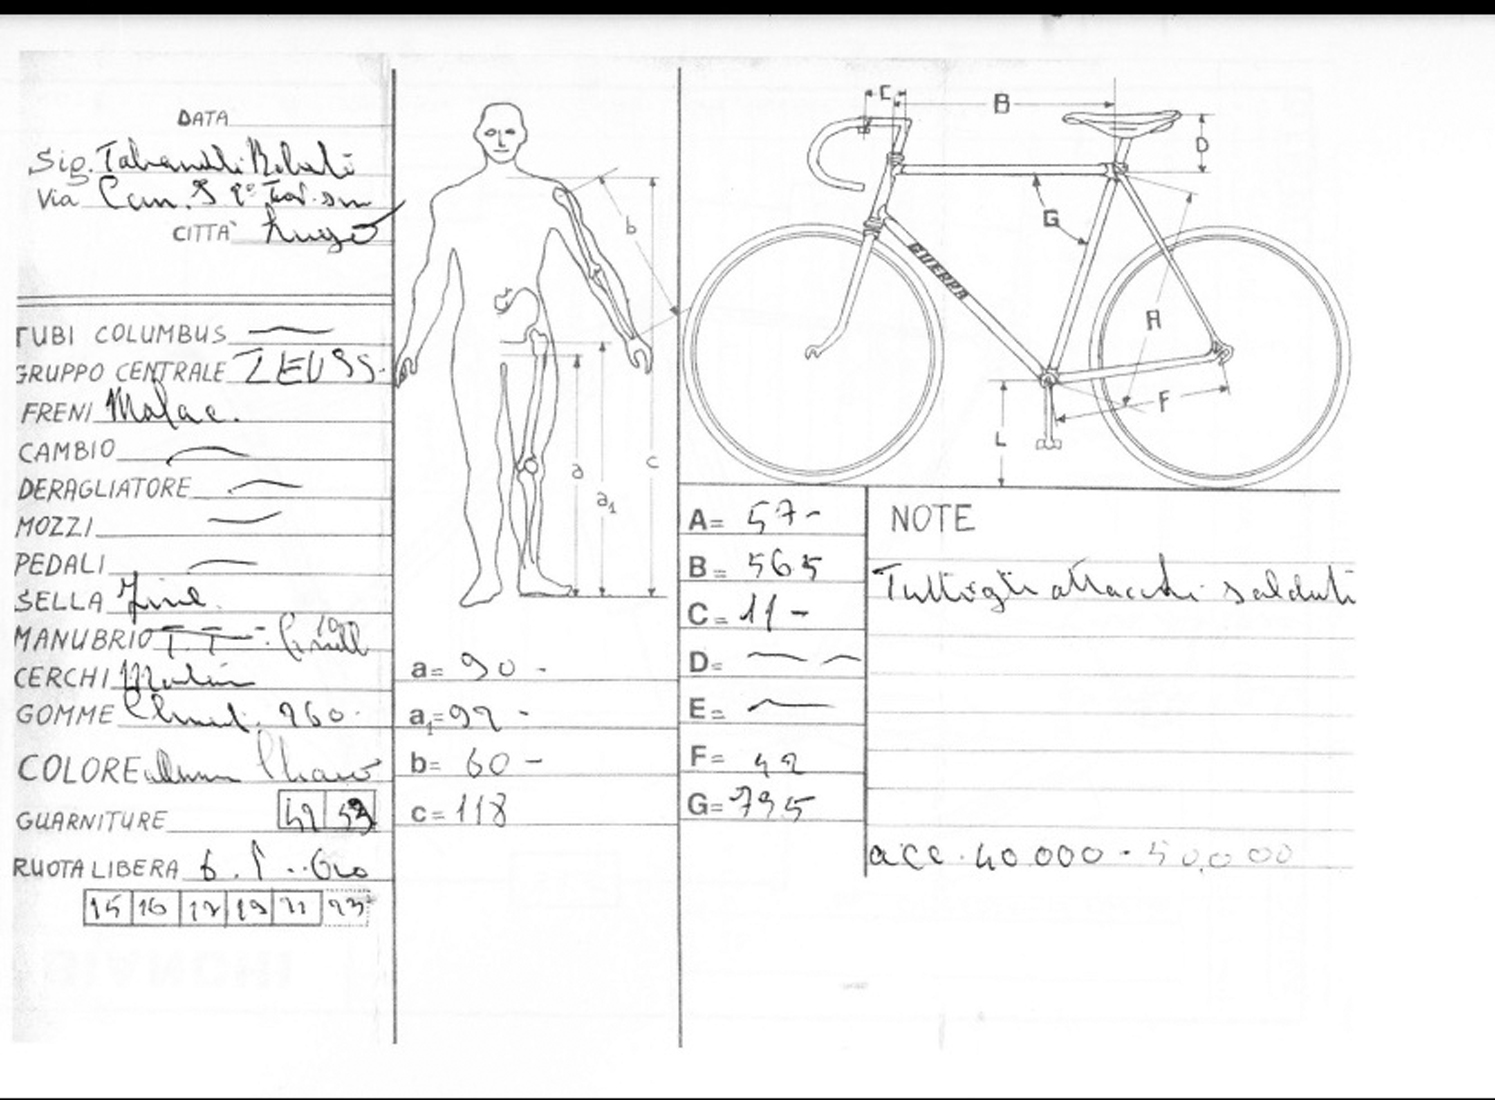 DATA
Sig.
Via Can. S 2° Trav. sn
CITTA' Lugo
TUBI COLUMBUS
GRUPPO CENTRALE ZEUSS.
FRENI Mafac.
CAMBIO
DERAGLIATORE
MOZZI
PEDALI
SELLA
MANUBRIO T T
CERCHI
GOMME Clement. 260
COLORE chiaro
GUARNITURE 42 53
RUOTA LIBERA 6.
15 16 17 19 21 23
b
a
a1
c
a= 90 -
a1= 92 -
b= 60 -
c= 118
C
B
D
G
GUERRA
A
F
L
A= 57 -
B= 565
C= 11 -
D=
E=
F= 42
G= 735
NOTE
Tutti gli attacchi saldati
acc. 40 000 - 50,000